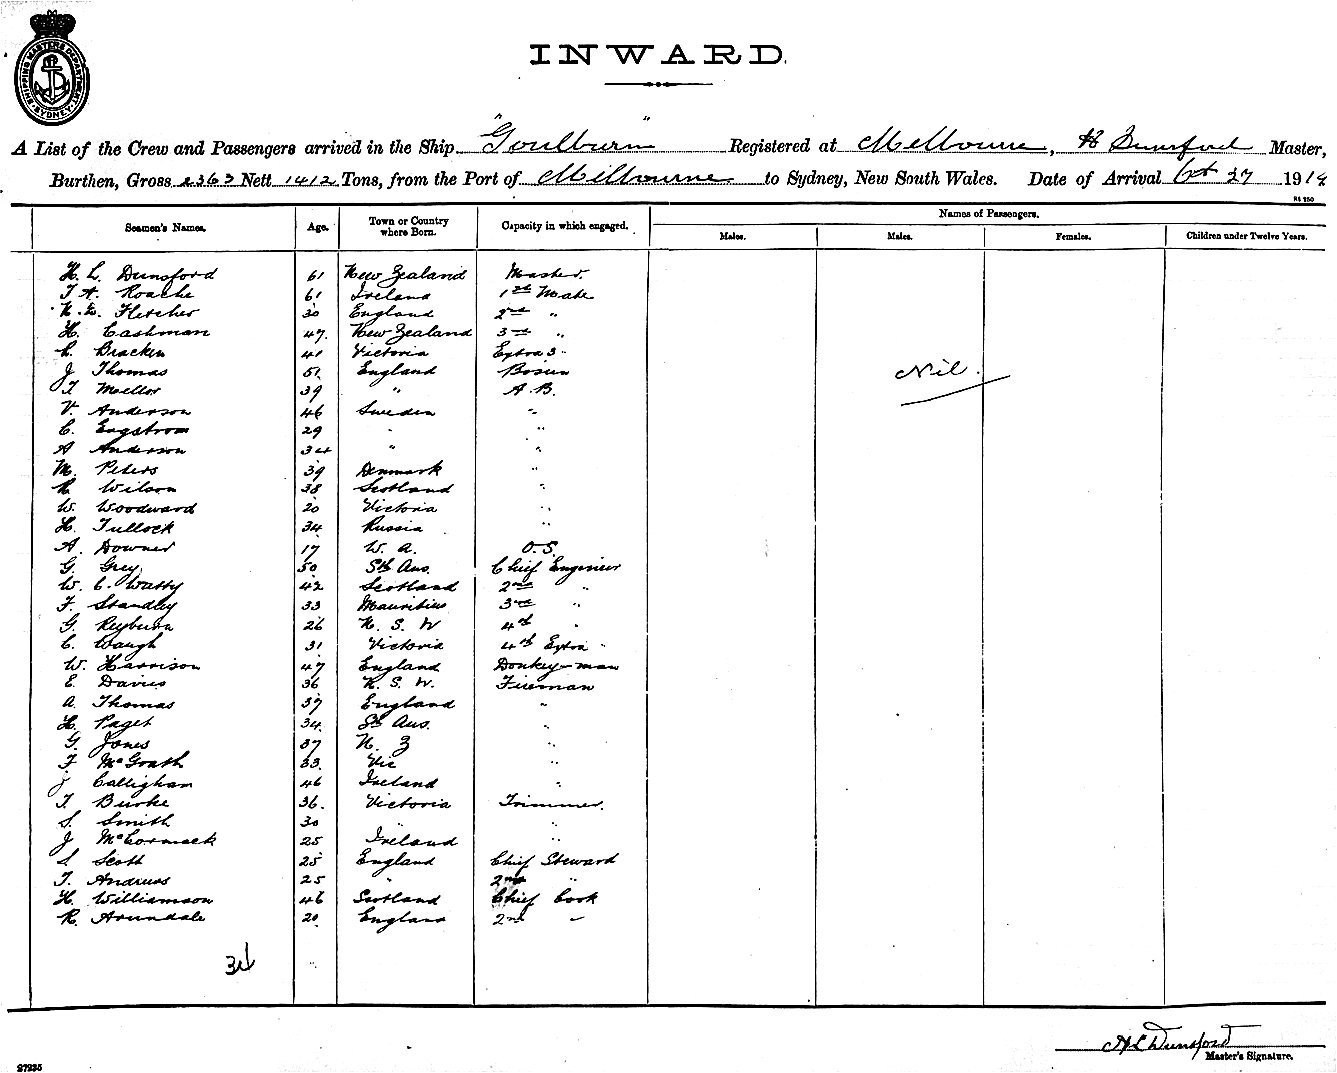 SHIPPING MASTERS DEPARTMENT SYDNEY
INWARD.
A List of the Crew and Passengers arrived in the Ship "Goulburn" Registered at Melbourne, H Dunsford Master,
Burthen, Gross 2363 Nett 1412 Tons, from the Port of Melbourne to Sydney, New South Wales. Date of Arrival Oct 27 1914
Seamen's Names. Age. Town or Country where Born. Capacity in which engaged. Names of Passengers.
Males. Males. Females. Children under Twelve Years.
H. L. Dunsford 61 New Zealand Master
T A. Roache 61 Ireland 1st Mate
Fletcher 30 England 2nd "
H. Cashman 47 New Zealand 3rd "
L. Bracken 41 Victoria Extra 3 "
J Thomas 51 England Bosun
Nil.
T Moellor 39 " A.B.
V. Anderson 46 Sweden "
C. Engstrom 29 " "
A Anderson 34 " "
M. Peters 39 Denmark "
R Wilson 38 Scotland "
W. Woodward 20 Victoria "
H. Tullock 34 Russia "
A. Downer 17 W. A. O.S.
G. Grey 50 Sth Aus. Chief Engineer
W. C. Watty 42 Scotland 2nd "
F. Standley 33 Mauritius 3rd "
G. Reyburn 26 N. S. W 4th "
C. Waugh 31 Victoria 4th Extra "
W. Harrison 47 England Donkey-man
E. Davies 36 N. S. W. Fireman
A. Thomas 37 England "
H. Paget 34 Sth Aus. "
G. Jones 37 N. Z "
F McGrath 33 Vic "
J Calligham 46 Ireland "
T. Burke 36. Victoria Trimmer.
S. Smith 30 " "
J McCormack 25 Ireland "
S. Scott 25 England Chief Steward
T. Andrews 25 " 2nd "
H. Williamson 46 Scotland Chief Cook
R. Arundale 20 England 2nd "
34
H L Dunsford
Master's Signature.
27235